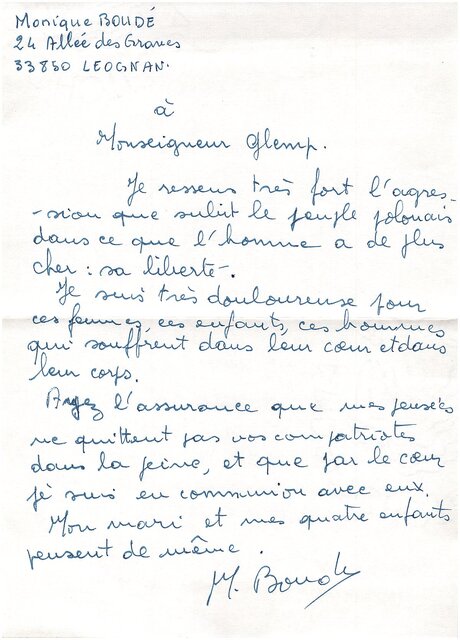 Monique BOUDÉ
24 Allée des Graves
33850 LEOGNAN.
à
Monseigneur Glemp.
Je ressens très fort l'agres-
-sion que subit le peuple polonais
dans ce que l'homme a de plus
cher : sa liberté.
Je suis très douloureuse pour
ces femmes, ces enfants, ces hommes
qui souffrent dans leur cœur et dans
leur corps.
Ayez l'assurance que mes pensées
ne quittent pas vos compatriotes
dans la peine, et que par le cœur
je suis en communion avec eux.
Mon mari et mes quatre enfants
pensent de même.
M. Boudé